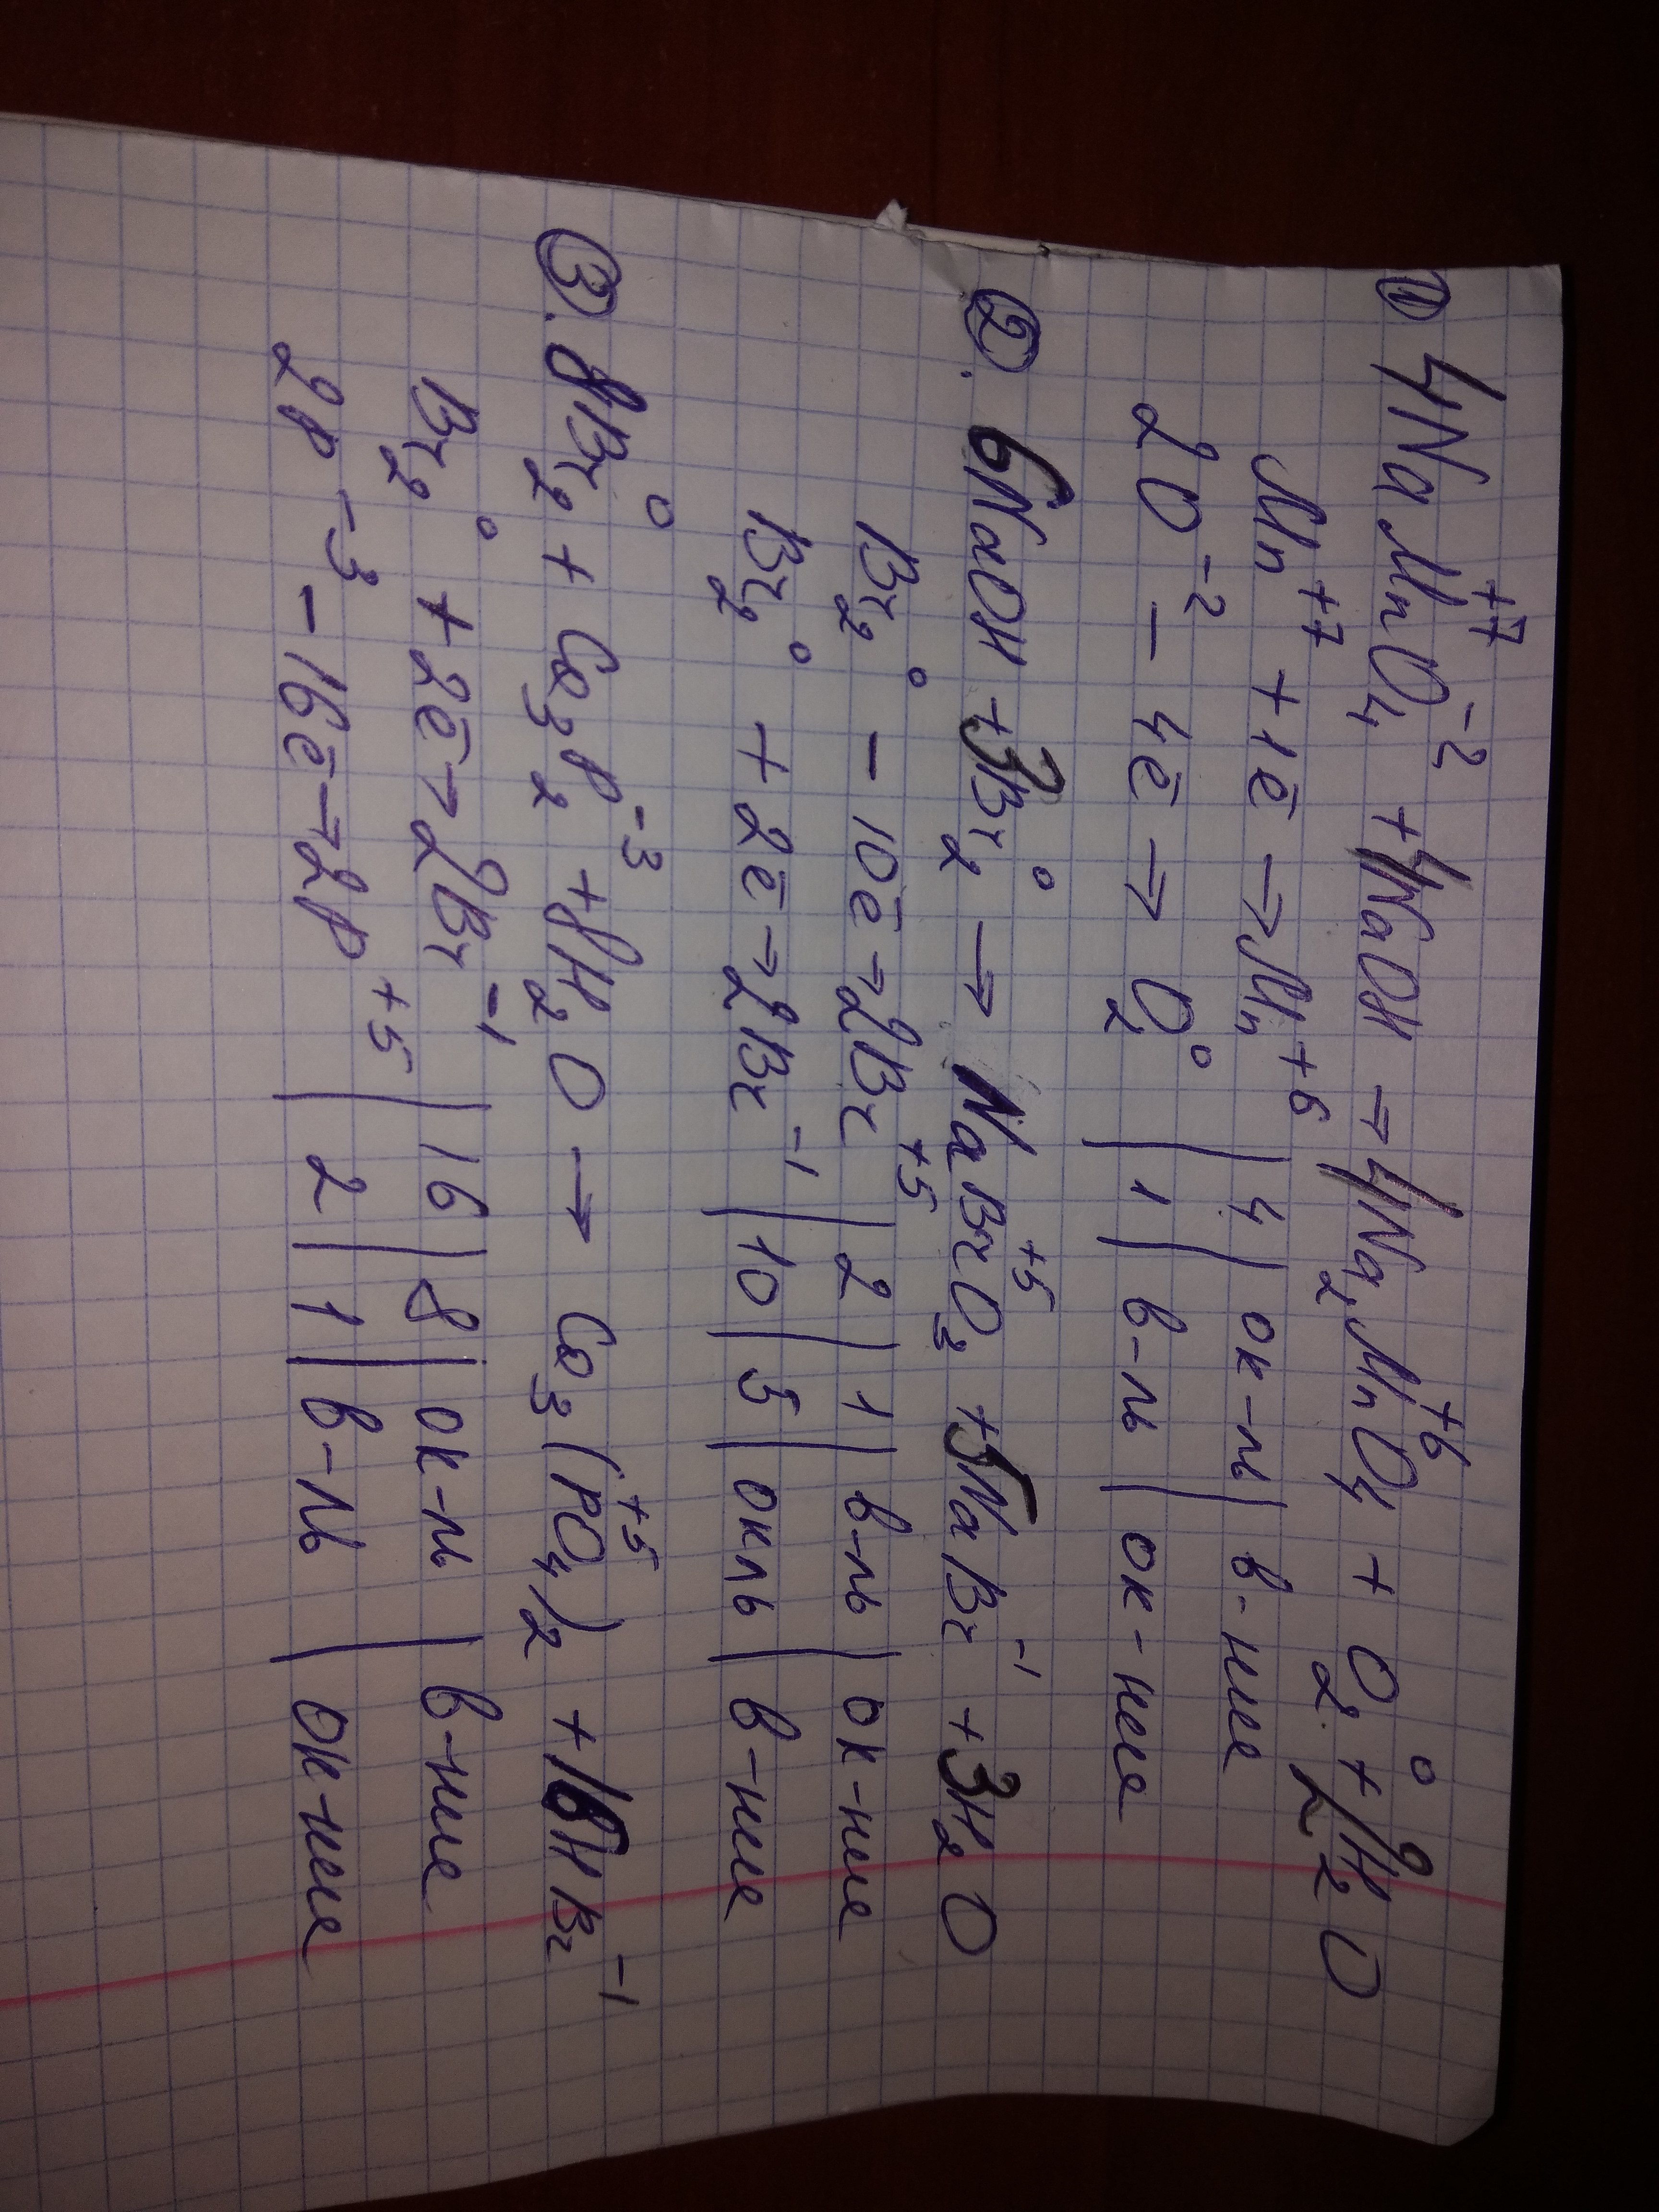 ① 4NaMn⁺⁷O₄⁻² + 4NaOH → 4Na₂Mn⁺⁶O₄ + O₂⁰ + 2H₂O
2
Mn⁺⁷ + 1ē → Mn⁺⁶ | 4 | ок-ль | в-ние
2O⁻² – 4ē → O₂⁰ | 1 | в-ль | ок-ние
②. 6NaOH + 3Br₂⁰ → NaBr⁺⁵O₃ + 5NaBr⁻¹ + 3H₂O
Br₂⁰ – 10ē → 2Br⁺⁵ | 2 | 1 | в-ль | ок-ние
Br₂⁰ + 2ē → 2Br⁻¹ | 10 | 5 | окль | в-ние
③. 8Br₂⁰ + Ca₃P₂⁻³ + 8H₂O → Ca₃(P⁺⁵O₄)₂ + 16HBr⁻¹
Br₂⁰ + 2ē → 2Br⁻¹ | 16 | 8 | ок-ль | в-ние
2P⁻³ – 16ē → 2P⁺⁵ | 2 | 1 | в-ль | ок-ние